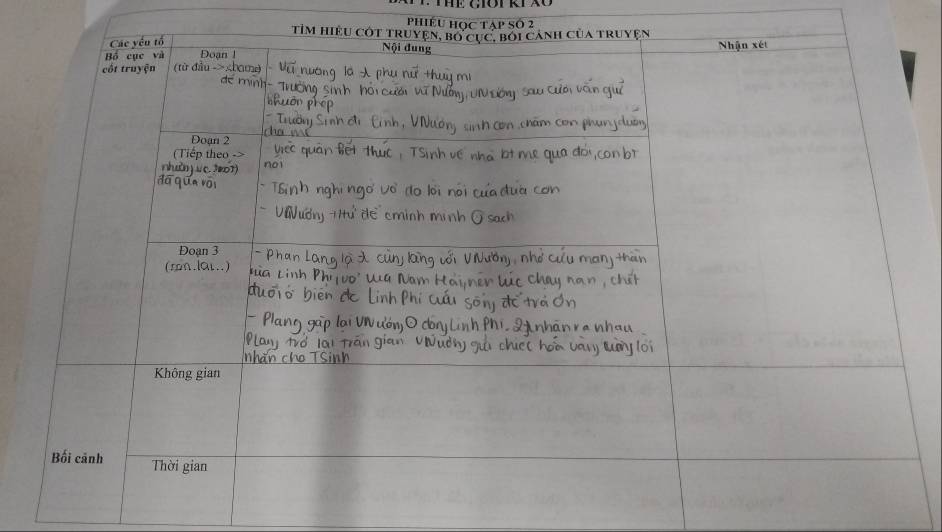 THẾ GIỚI KÌ ẢO
PHIẾU HỌC TẬP SỐ 2
TÌM HIỂU CỐT TRUYỆN, BỐ CỤC, BỐI CẢNH CỦA TRUYỆN
Các yếu tố
Nội dung
Nhận xét
Bố cục và
cốt truyện
Đoạn 1
(từ đầu ->
để mình
- Vũ nương là phụ nữ thùy mị
- Trương sinh hỏi cưới vũ Nương, VNương sau cưới vẫn giữ
khuôn phép
- Trương Sinh đi lính, VNương sinh con, chăm con phụng dưỡng
cha mẹ
Đoạn 2
(Tiếp theo ->
đã qua rồi
việc quân kết thúc, TSinh về nhà bt mẹ qua đời, con bt
nói
- TSinh nghi ngờ vợ do lời nói của đứa con
- VNương tự tử để cminh mình sạch
Đoạn 3
- Phan Lang là cùng làng với VNương, nhờ cứu mạng thần
rùa Linh Phi, vợ vua Nam Hải, nên lúc chạy nạn, chết
đuối ở biển đc Linh Phi cứu sống để trả ơn
- Plang gặp lại VNương động Linh Phi. 2 nhận ra nhau
Plang trở lại trần gian VNương gửi chiếc hoa vàng cùng lời
nhắn cho TSinh
Không gian
Bối cảnh
Thời gian